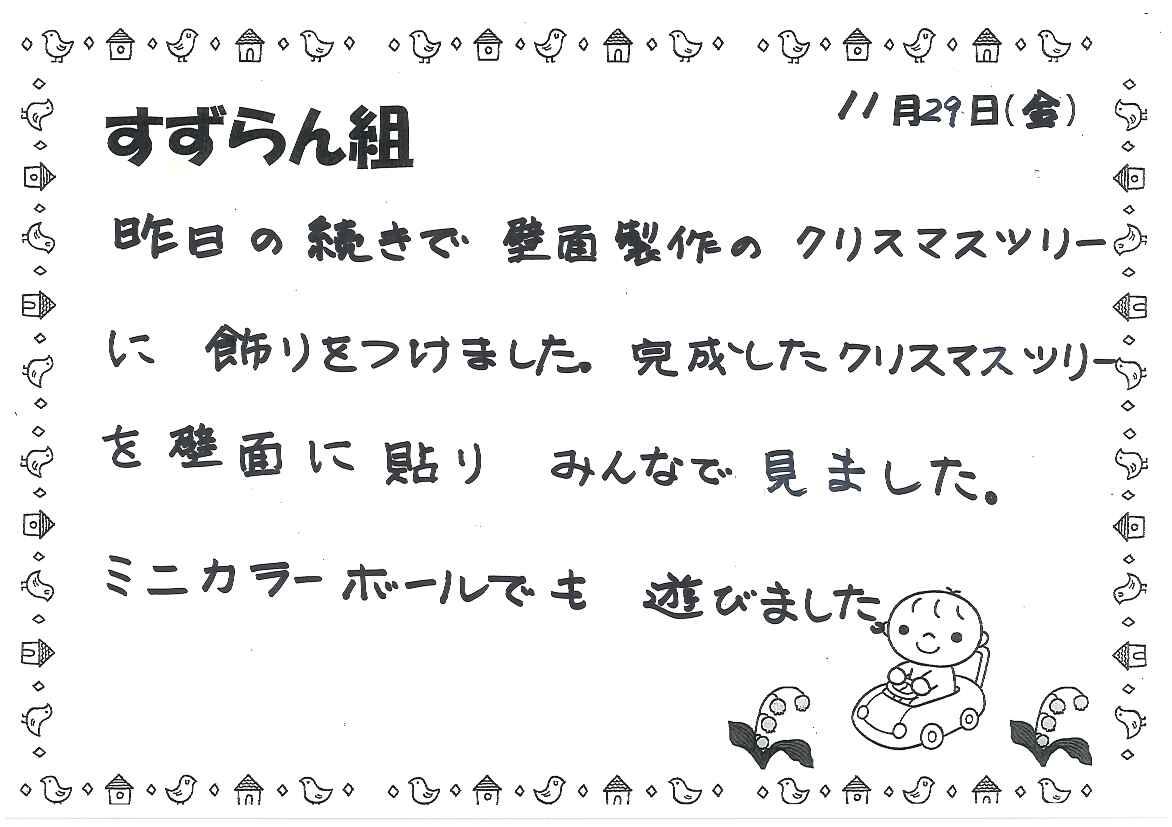 11月29日(金)
すずらん組
昨日の続きで 壁面製作の クリスマスツリー
に 飾りをつけました。完成したクリスマスツリー
を壁面に貼り みんなで見ました。
ミニカラーボールでも 遊びました。